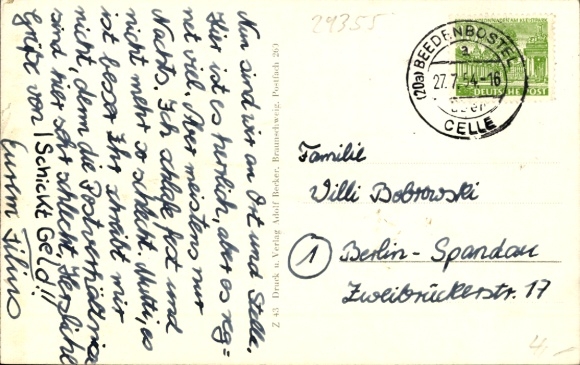 Nun sind wir an Ort und Stelle.
Hier ist es herrlich, aber es reg=
net viel. Aber meistens nur
Nachts. Ich schlafe fest und
nicht mehr so schlecht. Mutti, es
ist besser Ihr schreibt mir
nicht, denn die Postverhältnisse
sind hier sehr schlecht. Herzliche
Grüße von
Schickt Geld!!
Eurem
Z 43 Druck u. Verlag Adolf Becker, Braunschweig, Postfach 267
29355
(20a) BEEDENBOSTEL
a
27.7.54-16
über
CELLE
DEUTSCHE POST
Familie
Willi Bobrowski
1 Berlin-Spandau
Zweibrückerstr. 17
4,-